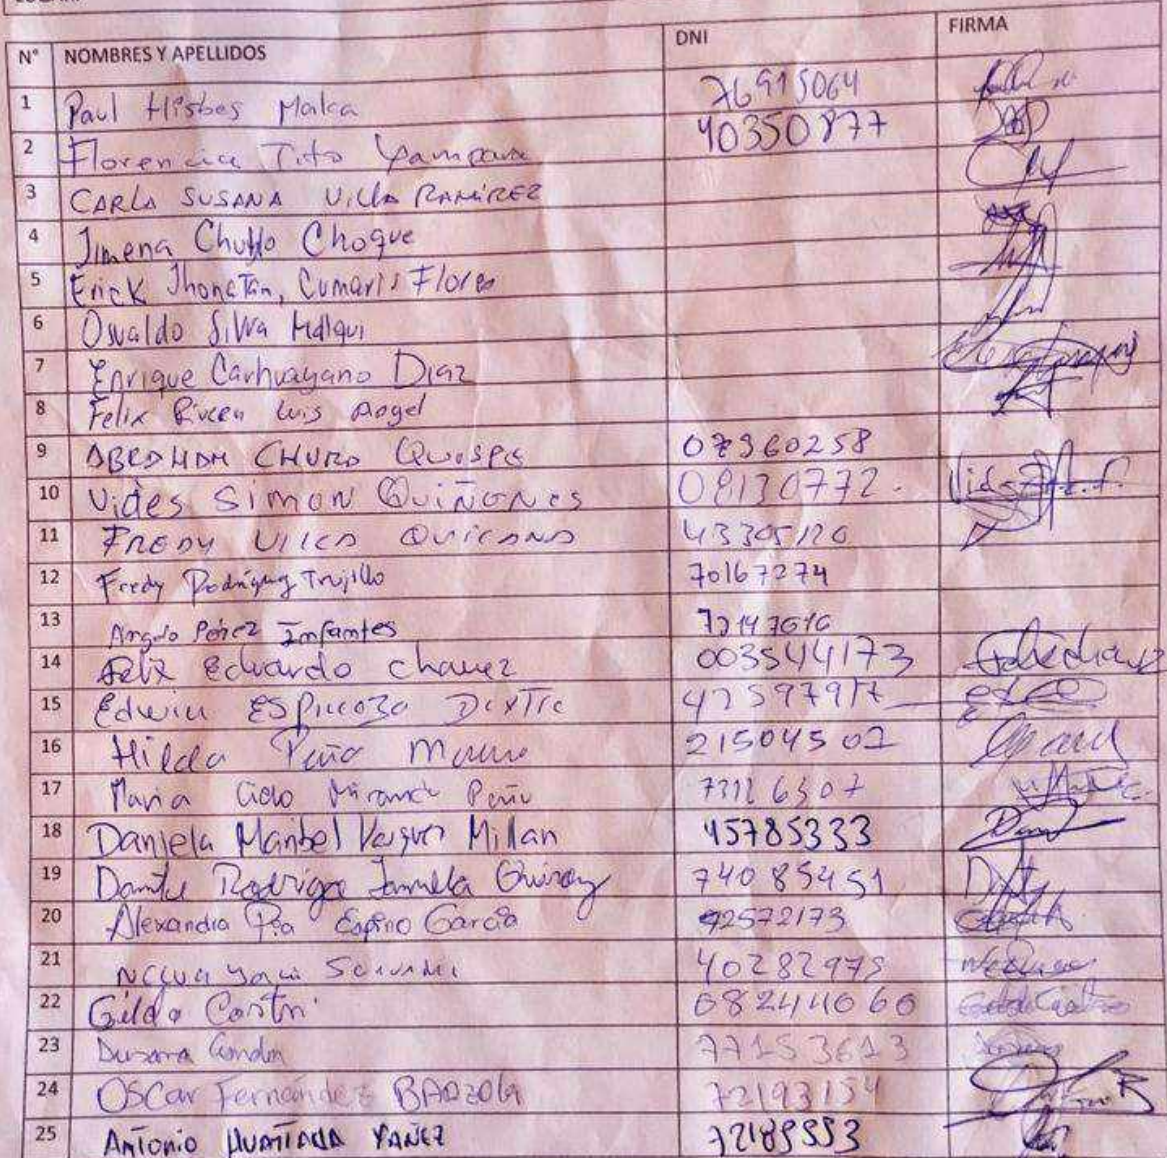 N° NOMBRES Y APELLIDOS DNI FIRMA
1 Paul Hisbes Malca 76915064
2 Florencia Tito Yampara 40350877
3 CARLA SUSANA Villa RAMÍREZ
4 Jimena Chullo Choque
5 Erick Jhonatan, Cumaris Flores
6 Osvaldo Silva Mallqui
7 Enrique Carhuayano Diaz
8 Felix Luis Angel
9 ABRAHAM CHURO QUISPE 07360258
10 Vides SIMON QUIÑONES 08130772.
11 FREDY VILCA QUICAÑO 43305126
12 Fredy Rodríguez Trujillo 70167274
13 Angelo Pérez Infantes
14 Felix Eduardo Chavez 003544173
15 Edwin ESPINOZA DEXTRE 42597917
16 Hilda Peña 21504502
17 Maria Miranda Peña 73126307
18 Daniela Maribel Vasquez Millan 45785333
19 Rodrigo 74085451
20 Alexandra Pia Espino Garcia 72572173
21 40282975
22 Gilda Castro 08244060
23 77153613
24 Oscar Fernández BARZOLA 72193154
25 ANTONIO HUAMANA YAÑEZ 72189553